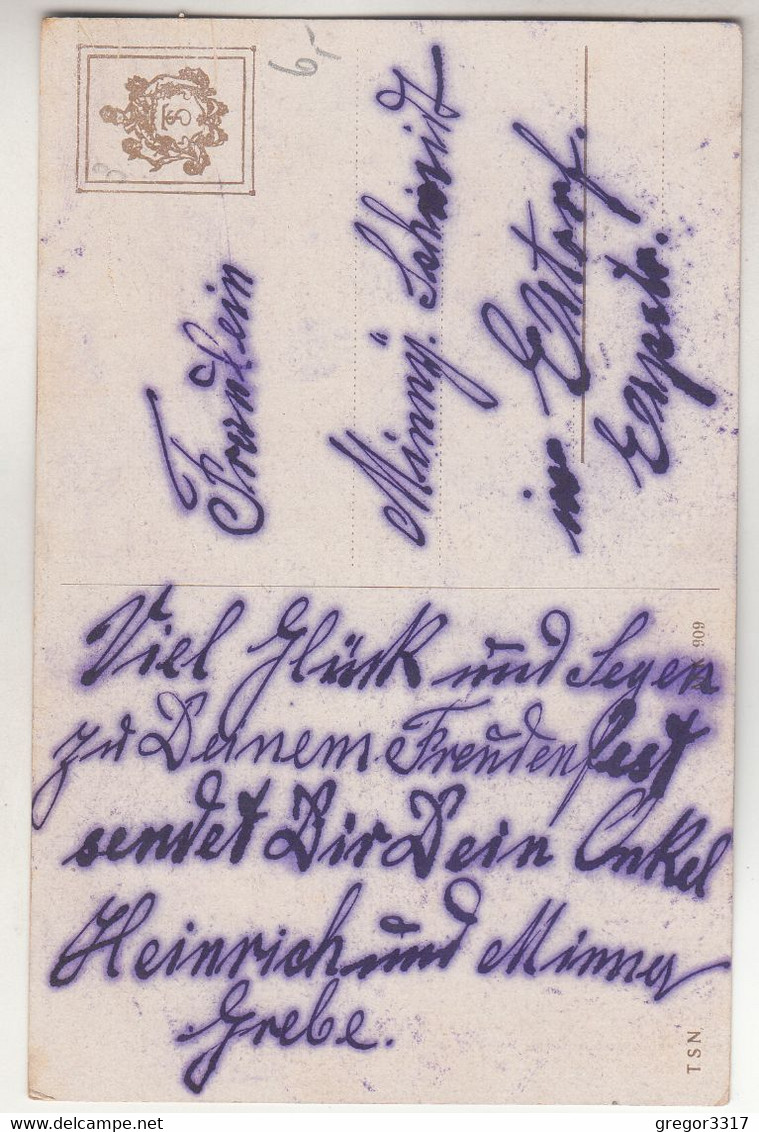 Fräulein
Minny. Schmidt
in Estorf.
Viel Glück und Segen
zu Deinem Freudenfest
sendet Dir Dein Onkel
Heinrich und Minna
Grebe.
6,-
909
TSN
delcampe.net
gregor3317